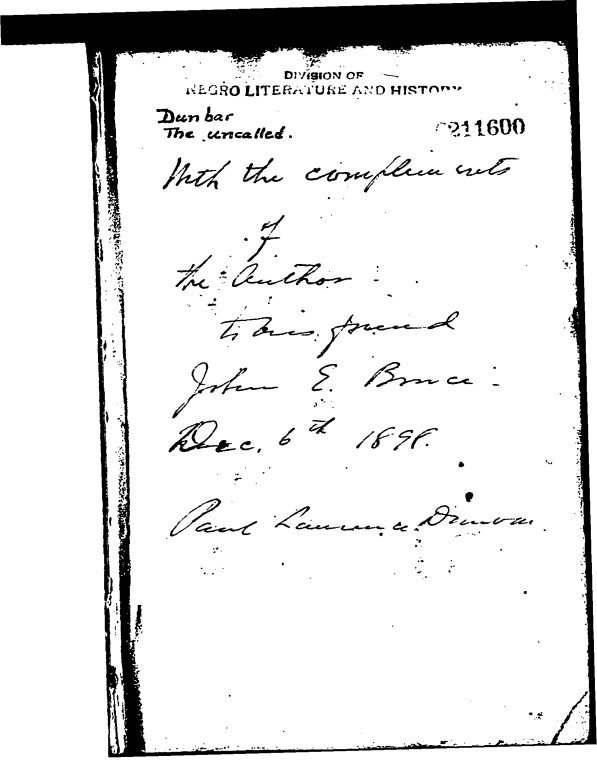 DIVISION OF
NEGRO LITERATURE AND HISTORY
Dunbar
The uncalled.
C211600
With the compliments
of
the Author
to his friend
John E. Bruce
Dec. 6th 1898.
Paul Laurence Dunbar